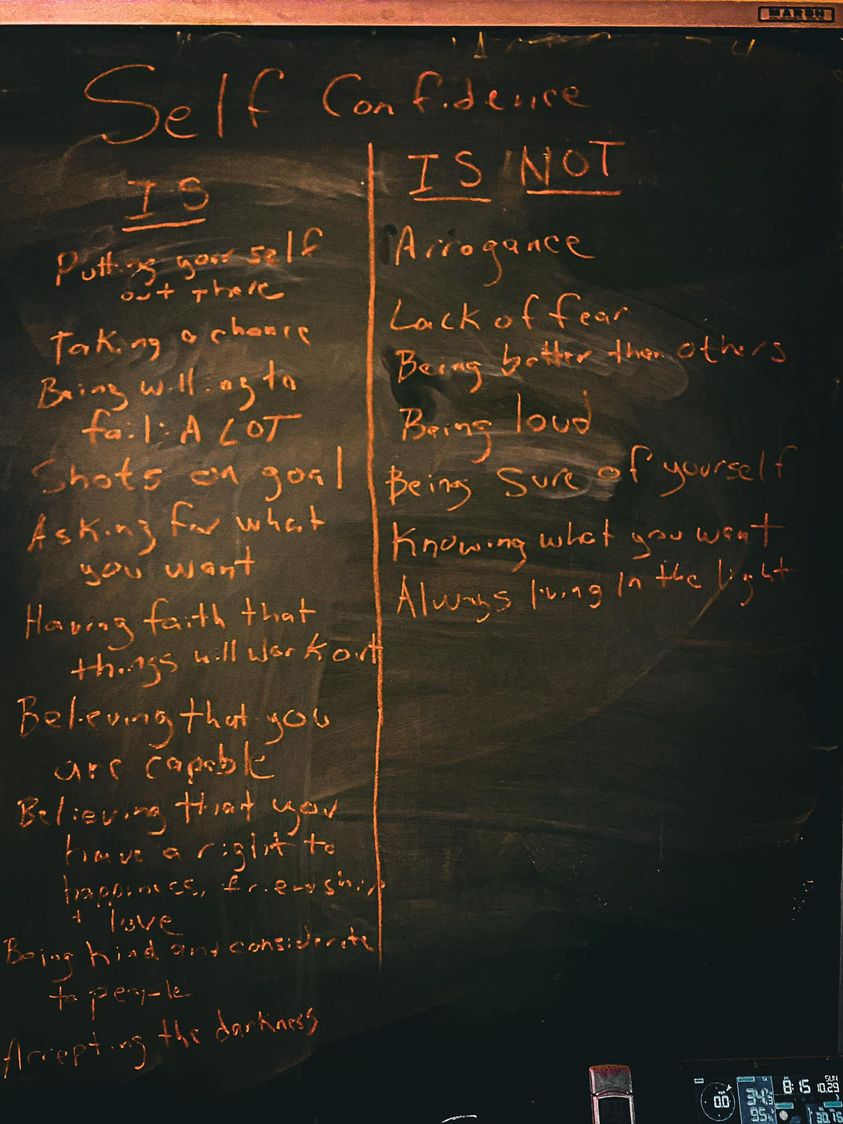 MARSH
Self Confidence
IS
Putting your self
out there
Taking a chance
Being willing to
fail: A LOT
Shots on goal
Asking for what
you want
Having faith that
things will work out
Believing that you
are capable
Believing that you
have a right to
happiness, friendship
+ love
Being kind and considerate
to people
Accepting the darkness
IS NOT
Arrogance
Lack of fear
Being better than others
Being loud
Being sure of yourself
Knowing what you want
Always living in the light
SUN
8:15 10.29
0.0
95%